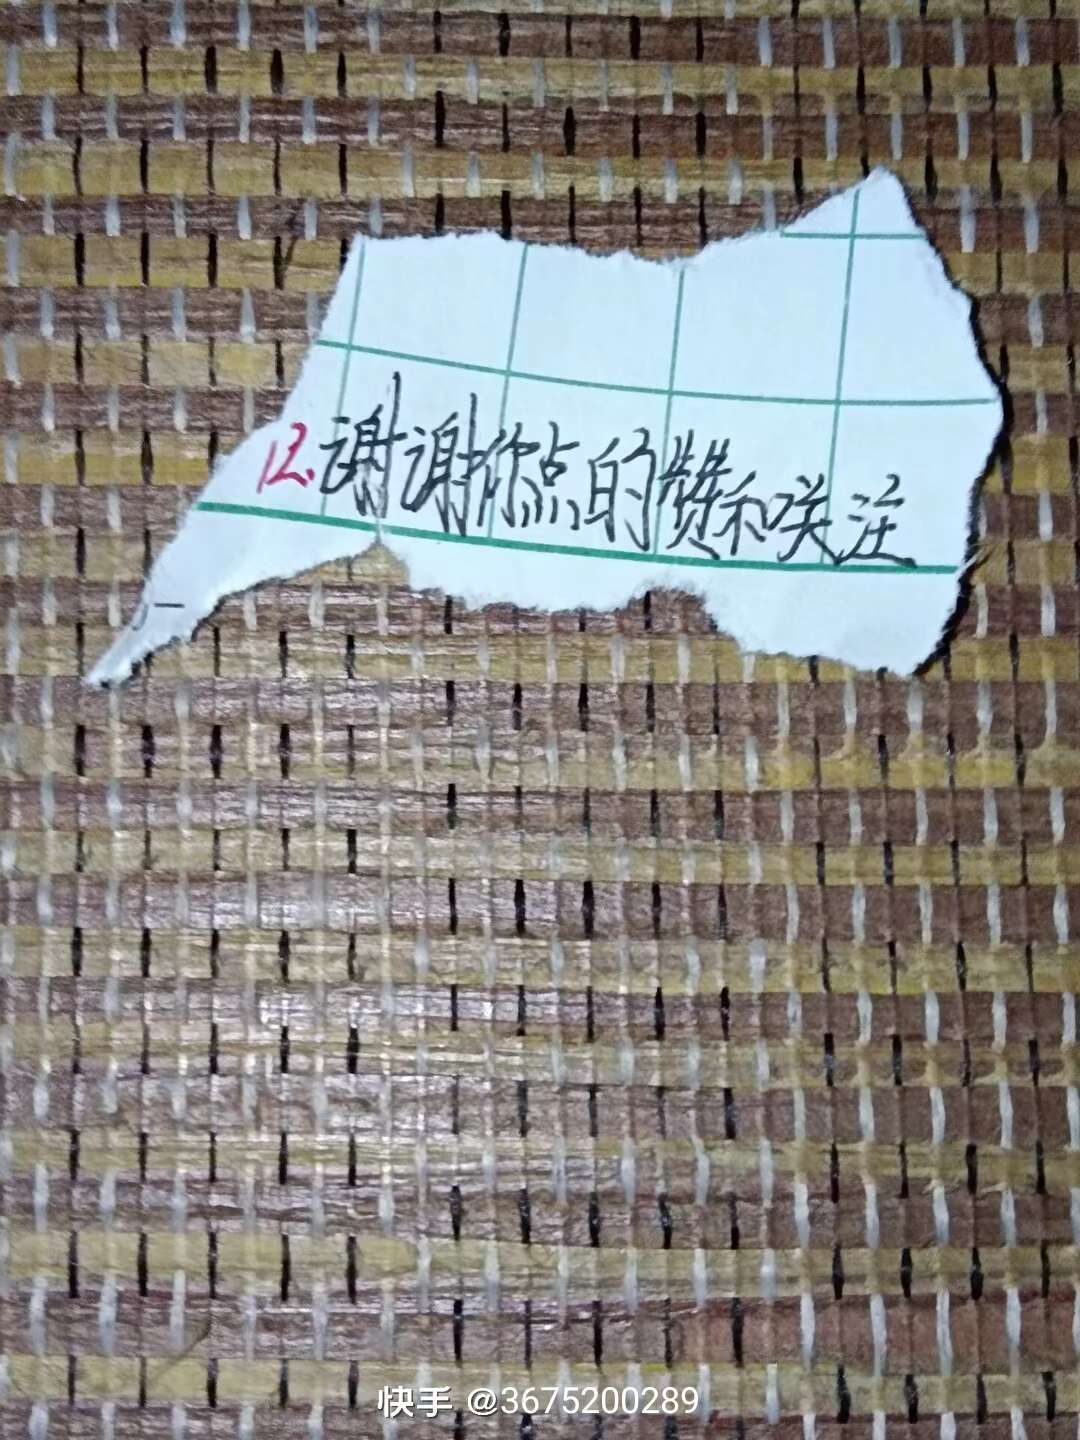 12.谢谢你点的赞和关注
快手 @3675200289